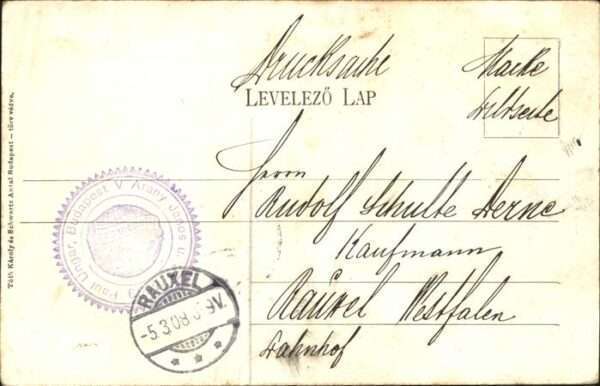 Drucksache
Marke
Bildseite
LEVELEZŐ LAP
Herrn
Rudolf Schulte Derne
Kaufmann
Rauxel Westfalen
Bahnhof
Paul Ungar, Budapest V Arany János u.
RAUXEL
-5.3.08. 9V.
Tóth Károly és Schwartz Antal Budapest — törv. védve.